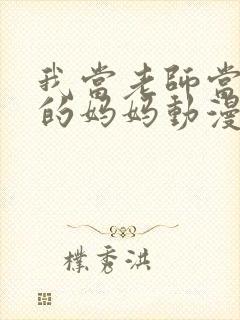 我當老師當
的妈妈動漫
樸秀洪